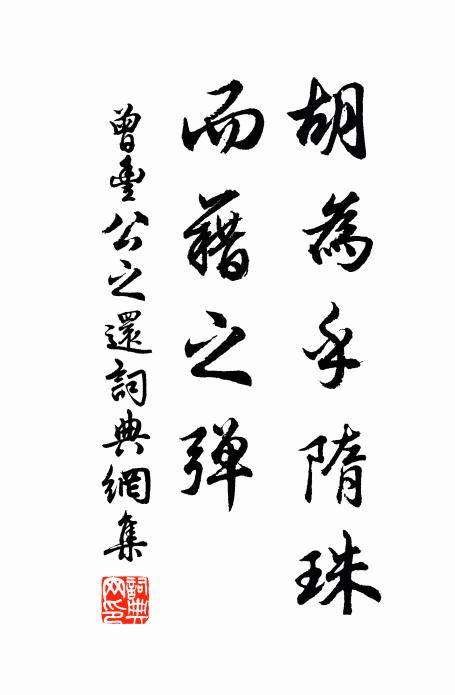 胡為乎隋珠
而藉之弹
曾豐公之還詞典網集
詞典網印